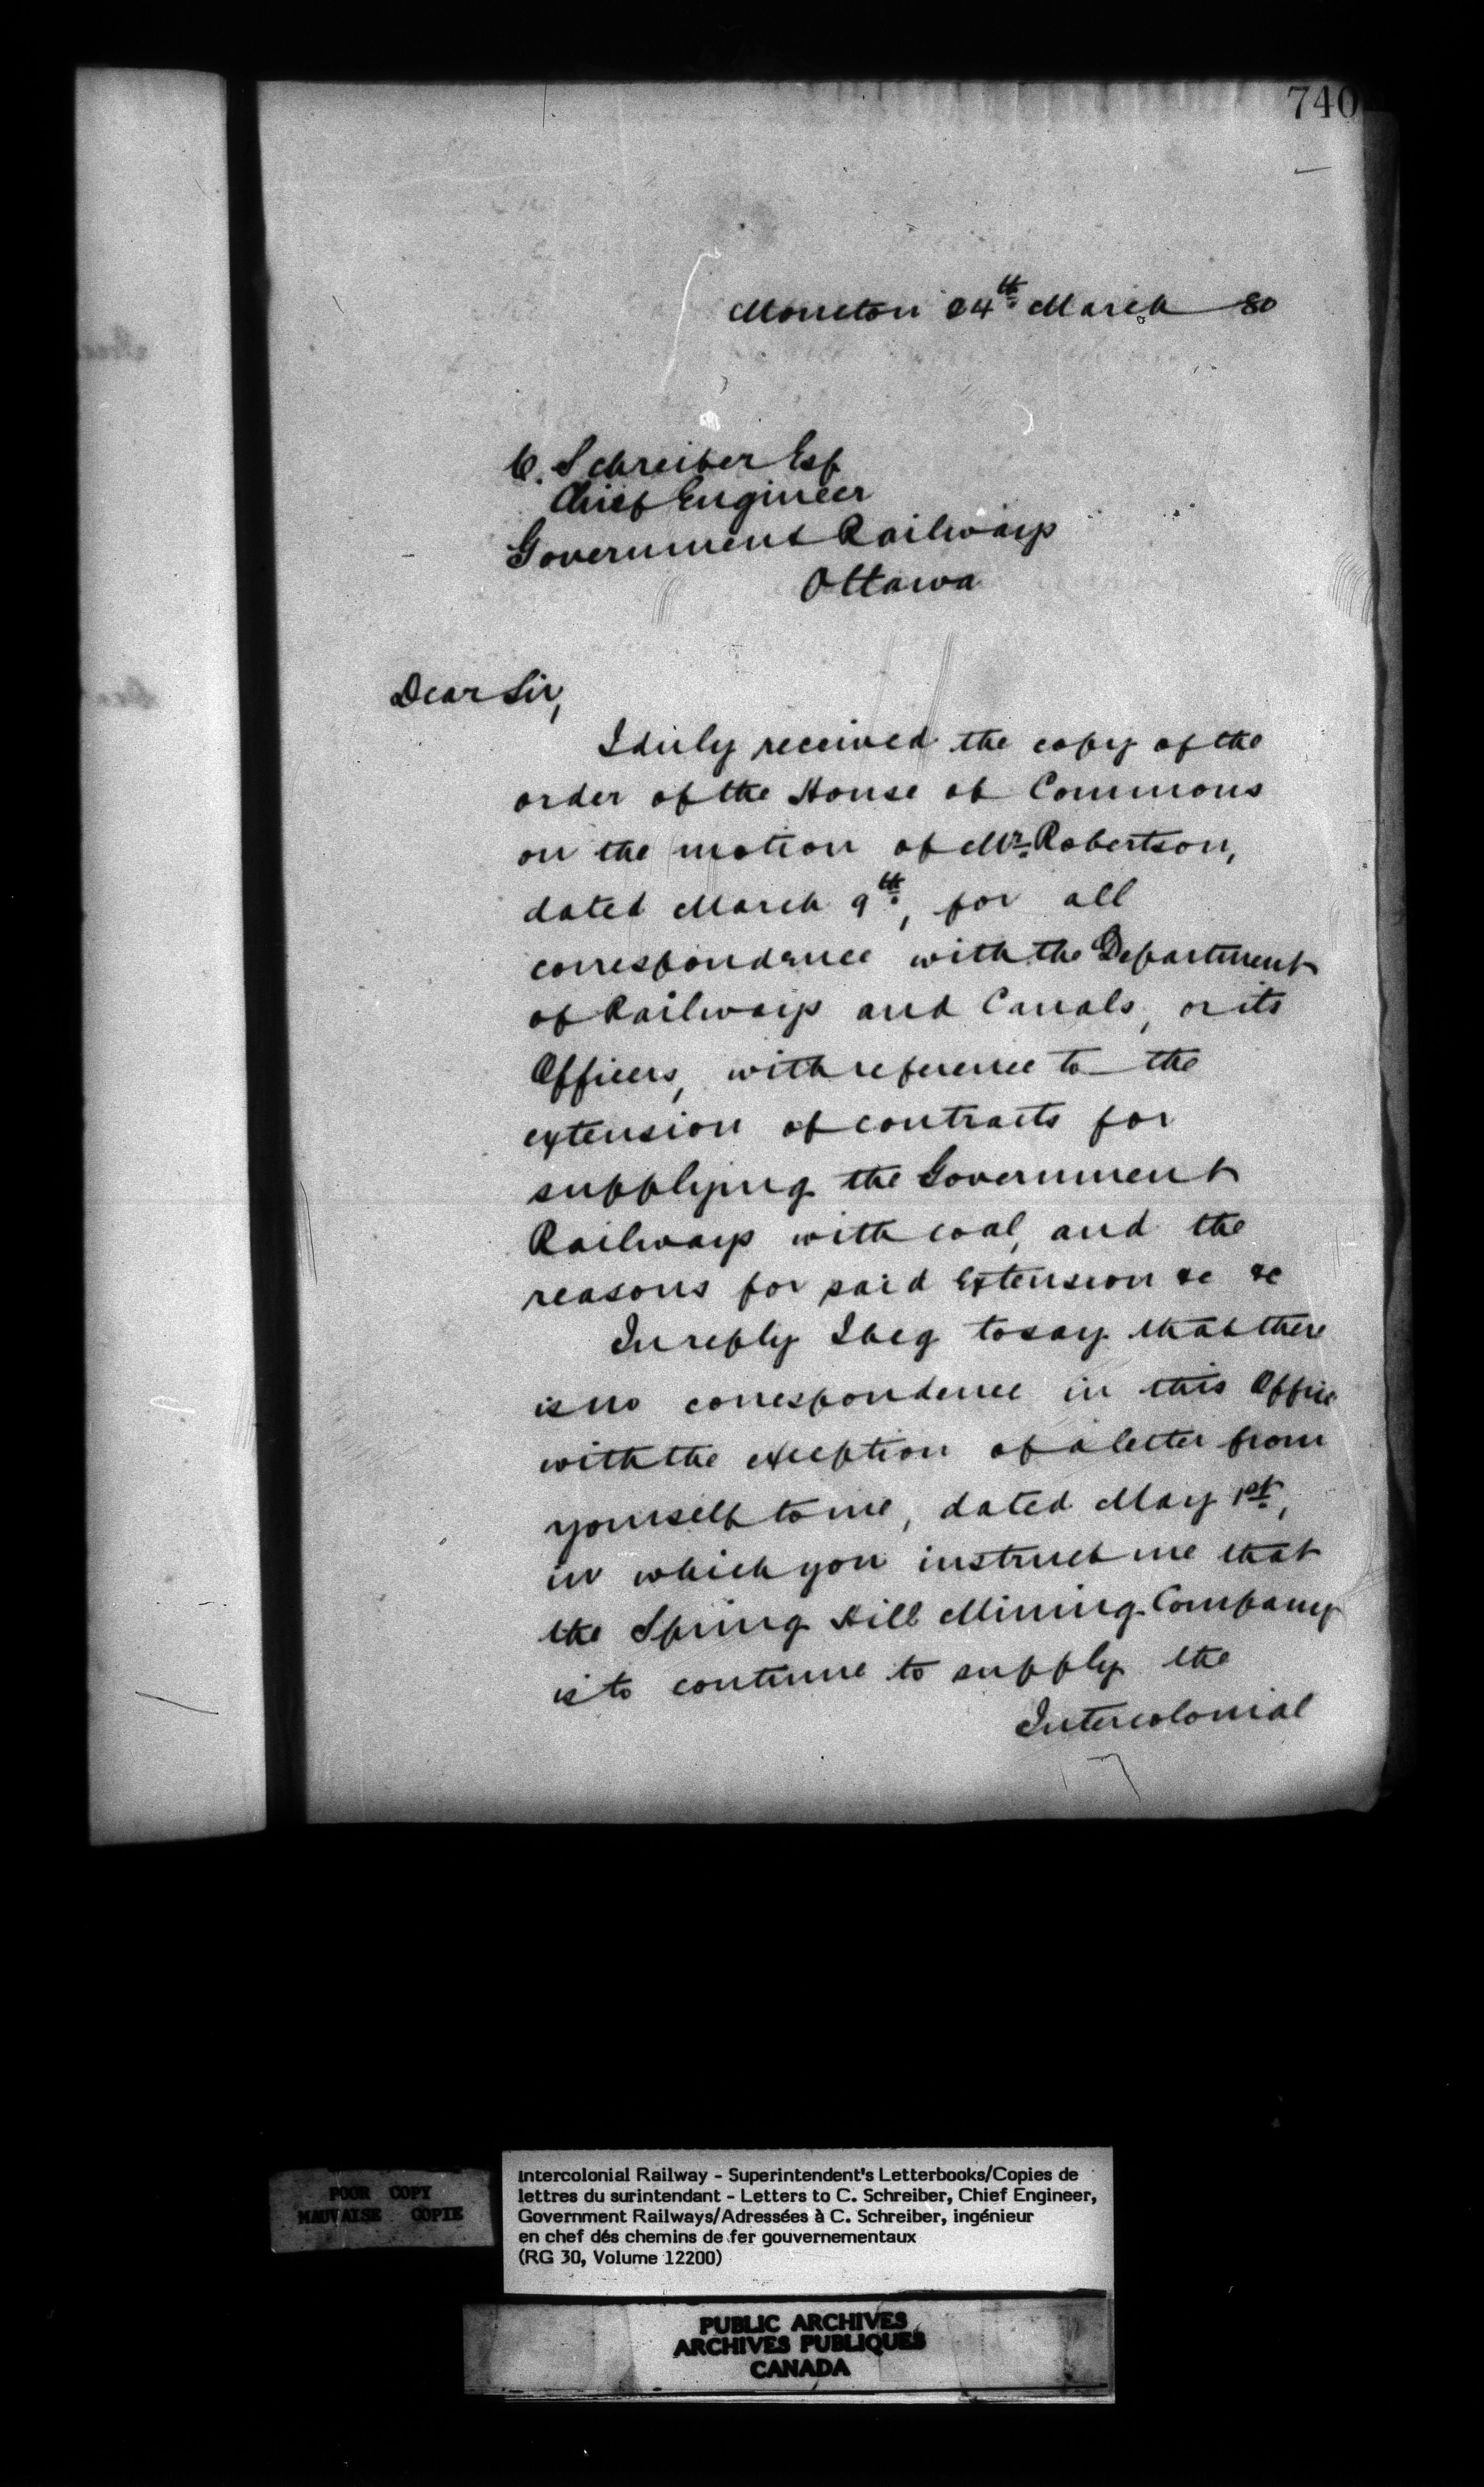 740
Moncton 24th March 80
C. Schreiber Esq
Chief Engineer
Government Railways
Ottawa
Dear Sir,
I duly received the copy of the
order of the House of Commons
on the motion of Mr. Robertson,
dated March 9th, for all
correspondence with the Department
of Railways and Canals, or its
Officers, with reference to the
extension of contracts for
supplying the Government
Railways with coal, and the
reasons for said Extension &c &c
In reply I beg to say that there
is no correspondence in this Office
with the exception of a letter from
yourself to me, dated May 1st,
in which you instruct me that
the Spring Hill Mining Company
is to continue to supply the
Intercolonial
POOR COPY
MAUVAISE COPIE
Intercolonial Railway - Superintendent's Letterbooks/Copies de
lettres du surintendant - Letters to C. Schreiber, Chief Engineer,
Government Railways/Adressées à C. Schreiber, ingénieur
en chef dés chemins de fer gouvernementaux
(RG 30, Volume 12200)
PUBLIC ARCHIVES
ARCHIVES PUBLIQUES
CANADA